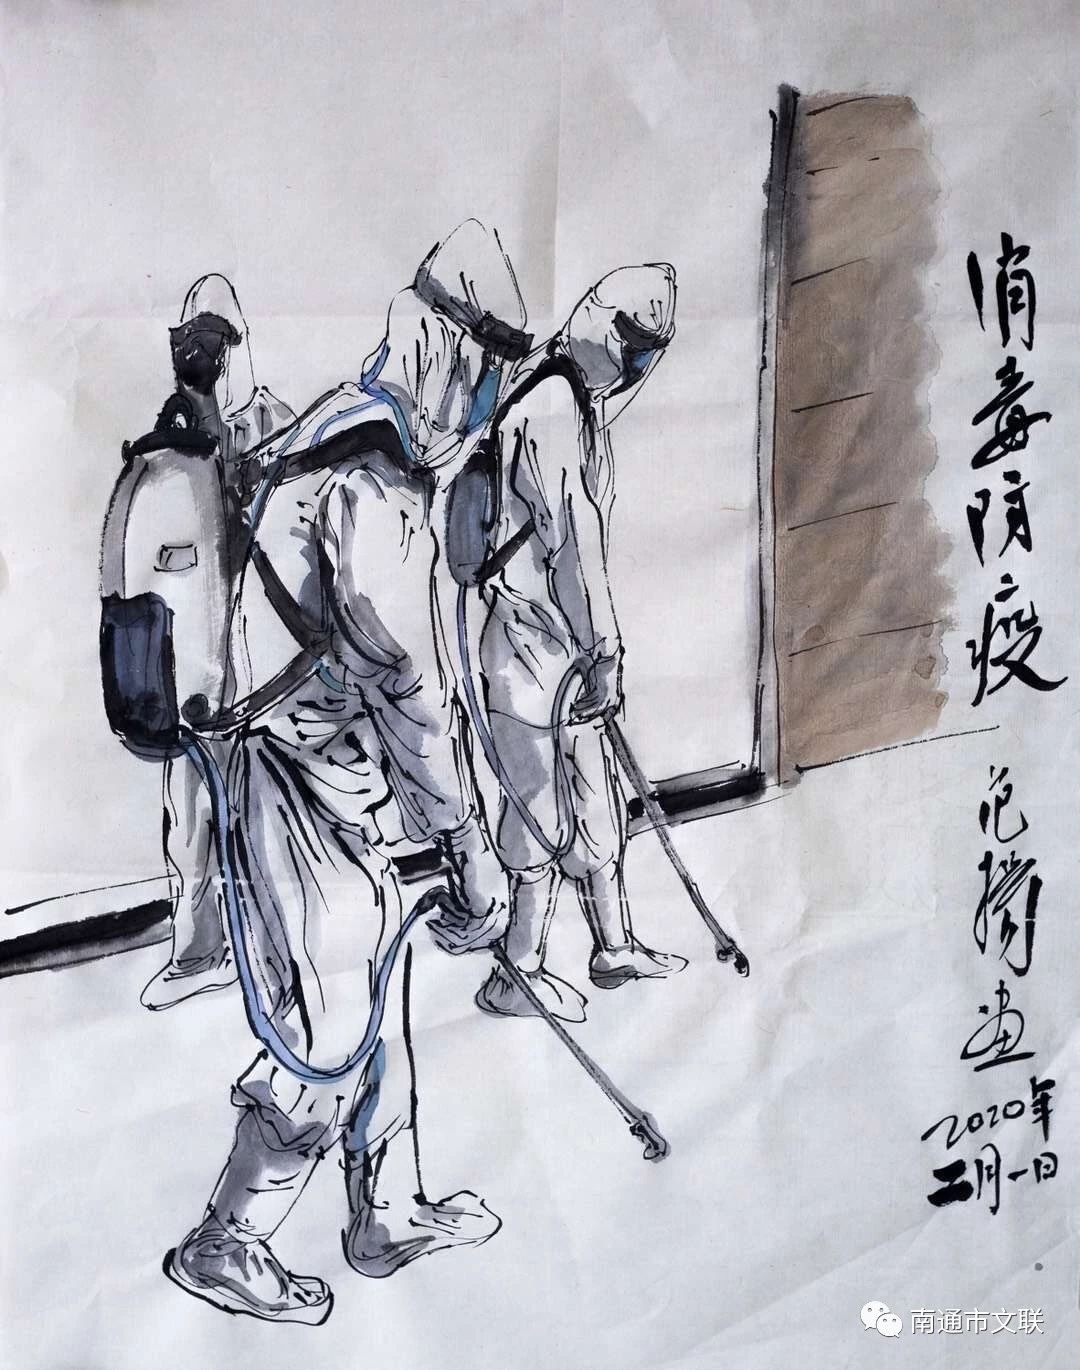 消毒防疫
范扬画
2020年
二月一日
南通市文联